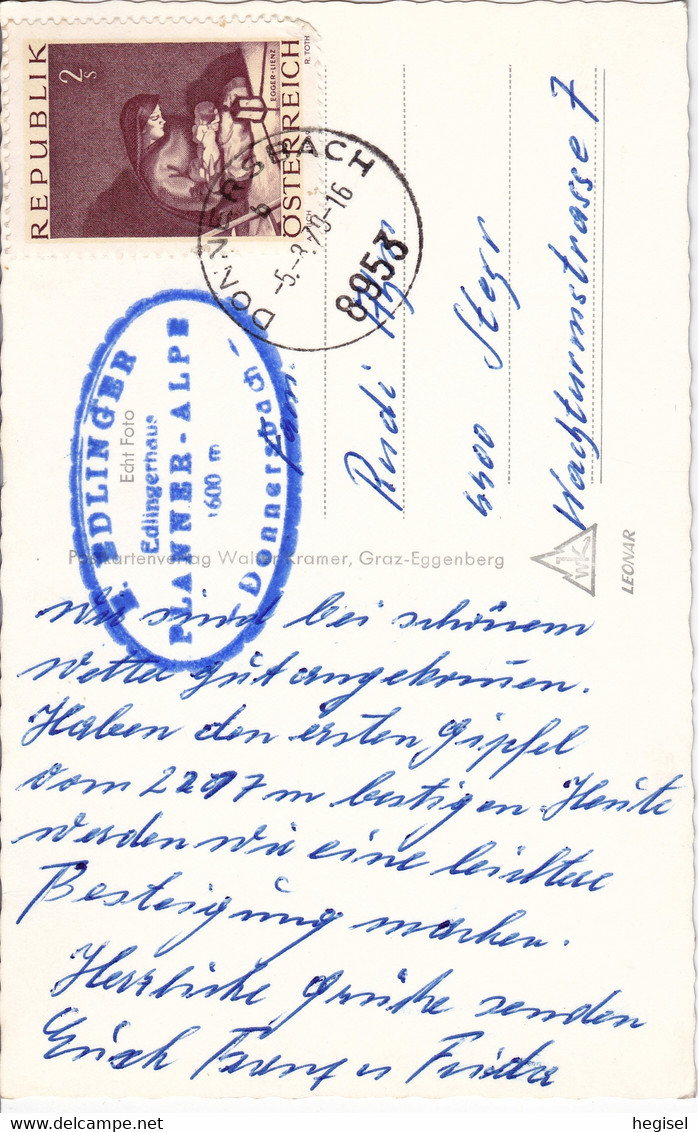 REPUBLIK
2 s
EGGER-LIENZ
R. TOTH
ÖSTERREICH
DONNERSBACH
8953
E. EDLINGER
Edlingerhaus
PLANNER-ALPE
1600 m
Donnersbach
Echt Foto
Fam.
Rudi
4400 Steyr
Wachturmstrasse 7
Postkartenverlag Walter Kramer, Graz-Eggenberg
WK
LEONAR
Wir sind bei schönem
Wetter gut angekommen.
Haben den ersten Gipfel
vom 2207 m bestigen Heute
werden wir eine leichtere
Besteigung machen.
Herzliche Grüße senden
Erich Franz u Frieda
hegisel
delcampe.net